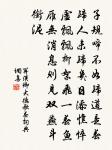 子規啼不如歸道是春
歸人未歸幾日添憔悴
虛飄飄柳絮飛一春魚
雁無消息則見雙燕鬥
銜泥
漢卿大德歌春句典
網